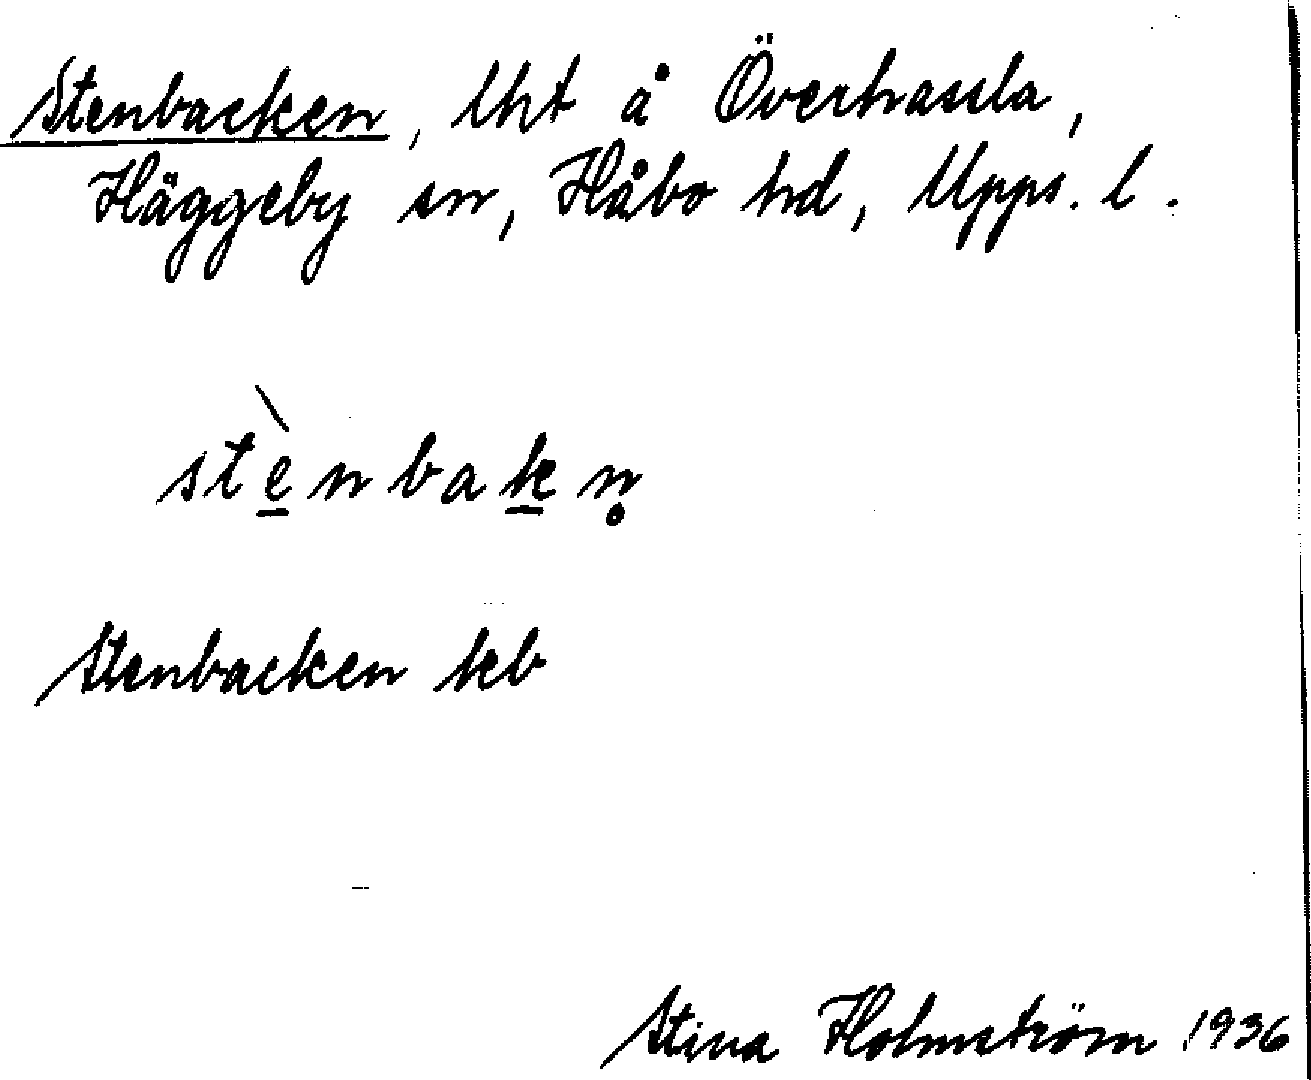 Stenbacken, lht å Överhassla,
Häggeby sn, Håbo hd, Upps. l.
stènbakn̥
Stenbacken kb
Stina Holmström 1936